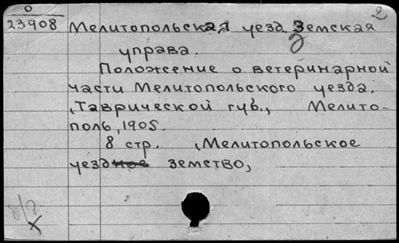 0
2
23908
Мелитопольская уезд. Земская
управа.
Положение о ветеринарной
части Мелитопольского уезда.
,Таврической губ., Мелито-
поль, 1905.
8 стр. ,Мелитопольское
уездное земство,